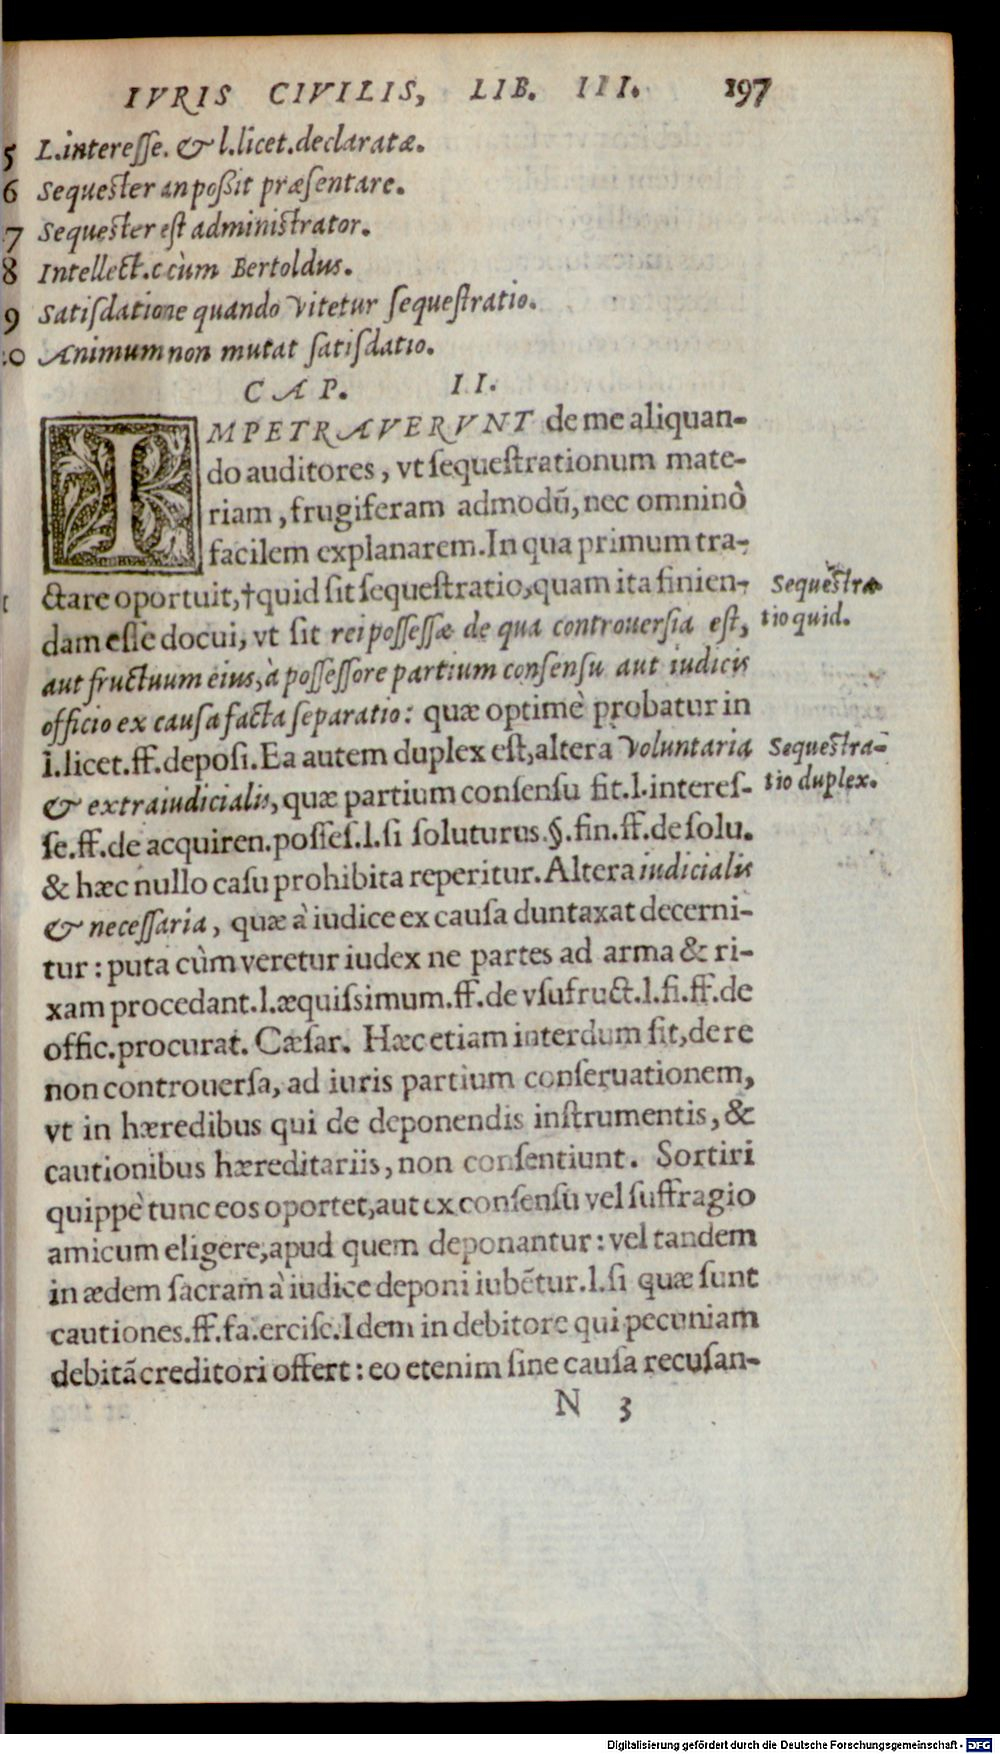 IVRIS CIVILIS, LIB. III. 197
5 L.interesse. & l.licet.declaratæ.
6 Sequester an poßit præsentare.
7 Sequester est administrator.
8 Intellect.c cùm Bertoldus.
9 Satisdatione quando vitetur sequestratio.
10 Animum non mutat satisdatio.
CAP. II.
IMPETRAVERVNT de me aliquan-
do auditores, vt sequestrationum mate-
riam, frugiferam admodũ, nec omninò
facilem explanarem. In qua primum tra-
ctare oportuit, †quid sit sequestratio, quam ita finien-
Sequestra
tio quid.
dam esse docui, vt sit rei possessæ de qua controuersia est,
aut fructuum eius, à possessore partium consensu aut iudicis
officio ex causa facta separatio: quæ optimè probatur in
l.licet.ff.deposi. Ea autem duplex est, altera voluntaria
Sequestra-
tio duplex.
& extraiudicialis, quæ partium consensu fit.l.interes-
se.ff.de acquiren.posses.l.si soluturus.§.fin.ff.de solu.
& hæc nullo casu prohibita reperitur. Altera iudicialis
& necessaria, quæ à iudice ex causa duntaxat decerni-
tur: puta cùm veretur iudex ne partes ad arma & ri-
xam procedant.l.æquissimum.ff.de vsufruct.l.fi.ff.de
offic.procurat. Cæsar. Hæc etiam interdum fit, de re
non controuersa, ad iuris partium conseruationem,
vt in hæredibus qui de deponendis instrumentis, &
cautionibus hæreditariis, non consentiunt. Sortiri
quippè tunc eos oportet, aut ex consensu vel suffragio
amicum eligere, apud quem deponantur: vel tandem
in ædem sacram à iudice deponi iubẽtur.l.si quæ sunt
cautiones.ff.fa.ercisc. Idem in debitore qui pecuniam
debitã creditori offert: eo etenim sine causa recusan-
N 3
Digitalisierung gefördert durch die Deutsche Forschungsgemeinschaft - DFG